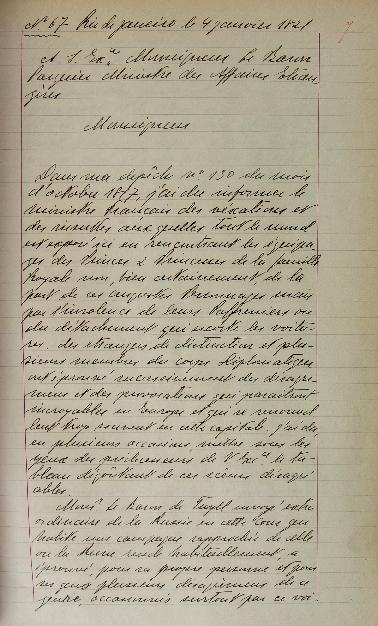 Nº 67 Rio de Janeiro le 4 janvier 1821
A. S. Exce. Monseigneur Le Baron
Pasquier Ministre des Affaires Etran
gères
Monseigneur
Dans ma depêche nº 130 du mois
d'octobre 1817, j'ai du informer le
ministre français des vexations et
des insultes aux quelles tout le monde
est exposé ici en rencontrant les équipa
ges des Princes & Princesses de la famille
Royale non, bien certainement, de la
part de ces augustes Personnages mais
par l'insolence de leurs Palfreniers ou
du détachement qui escorte les voitu-
res. des étrangers de distinction et plu-
sieurs membres du corps Diplomatique
ont éprouvé successivement des désagré-
mens et des provocations qui paraitront
incroyables en Europe et qui se renouvel
lent trop souvent en cette capitale. j'ai dû
en plusieurs occasions, mettre sous les
yeux des prédécesseurs de V. Exce. le ta-
bleau dégoûtant de ces scènes désagré
ables.
Monsr. le Baron de Tuyll envoyé extra
ordinaire de la Russie en cette Cour qui
habite une campagne rapprochée de celle
ou la Reine reside habituellement, a
éprouvé, pour sa propre personne et pour
ses gens plusieurs désagrémens de ce
genre, occasionnés surtout par ce voi-